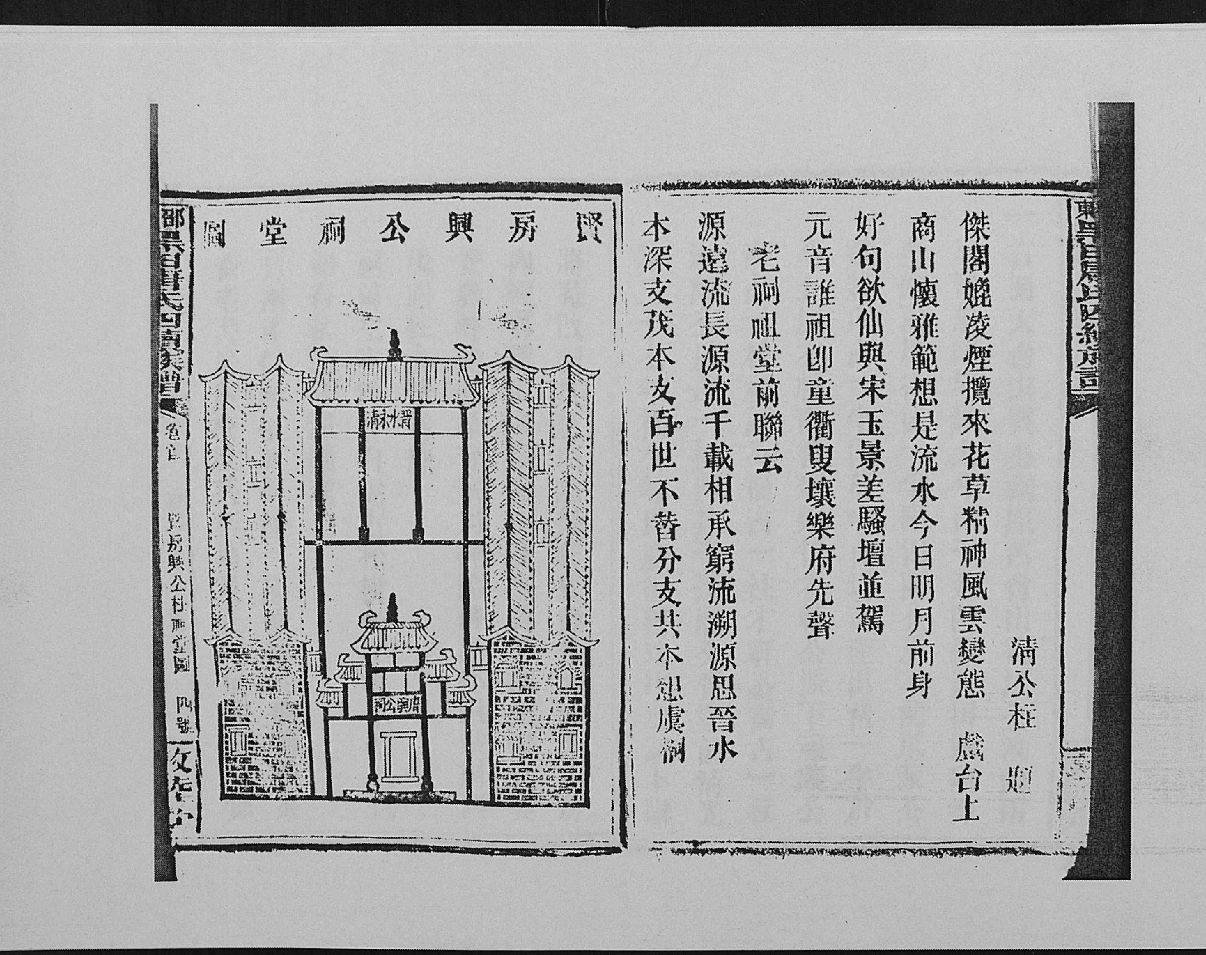 清公柱 題
傑閣嬎淩煙攬來花草精神風雲變態 戲台上
商山懷雅範想是流水今日明月前身
好句欲仙與宋玉景差騷壇並駕
元音誰祖卽童衢叟壤樂府先聲
宅祠祖堂前聯云
源遠流長源流千載相承窮流溯源思晉水
木深支茂本支百世不替分支共本想虞桐
賢房興公祠堂圖
晉水永清
唐興公祠
卷首
賢房興公柱祠堂圖
四號